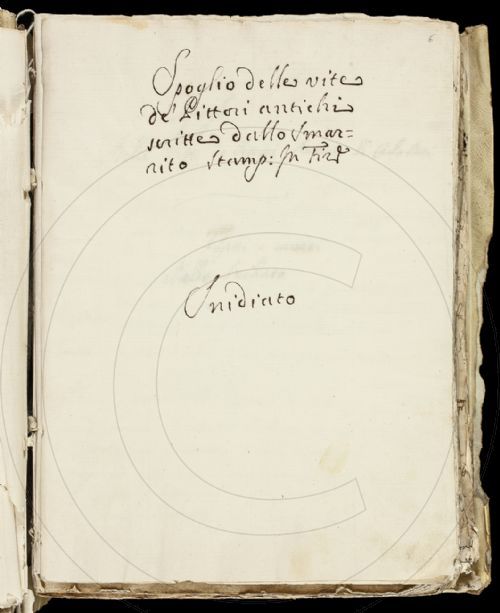 6
Spoglio delle vite
de' Pittori antichi
scritte dallo Smar=
rito Stamp: In Fire
Inidiato